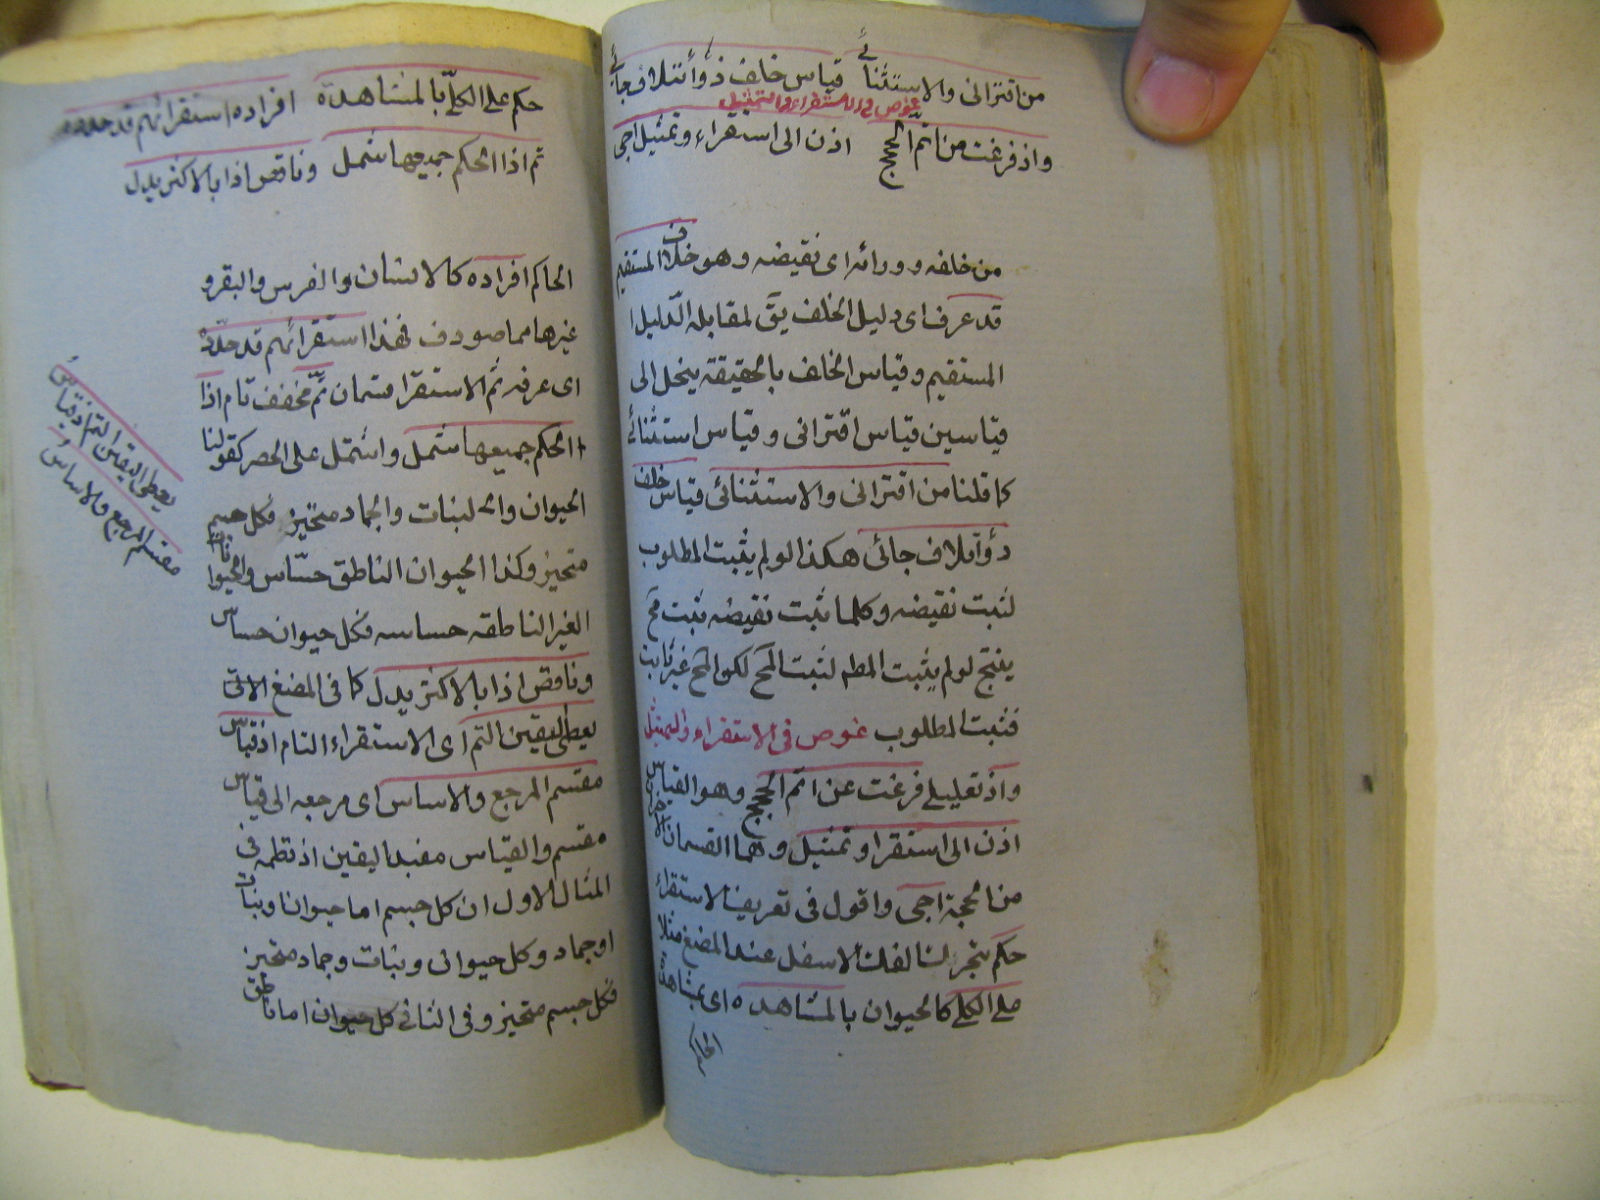 من اقترانی والاستثنائی قیاس خلف ذو أئتلاف جائی
غوص فی الاستقراء والتمثیل
واذ فرغت من اتم الحجج اذن الی استقراء وتمثیل اجی
من خلفه وورائه ای نقیضه وهو خلاف المستقیم
قد عرف ای دلیل الخلف یق لمقابله الدلیل
المستقیم وقیاس الخلف بالحقیقة ینحل الی
قیاسین قیاس اقترانی وقیاس استثنائی
کما قلنا من اقترانی والاستثنائی قیاس خلف
ذو أتلاف جائی هکذا لو لم یثبت المطلوب
لثبت نقیضه وکلما ثبت نقیضه ثبت مح
ینتج لو لم یثبت المط لثبت المح لکن المح غیر ثابت
فثبت المطلوب غوص فی الاستقراء والتمثیل
واذ تعلیلیے فرغت عن اتم الحجج وهو القیاس
اذن الی استقرا وتمثیل وهما القسمان الاخران
من الحجة اجی واقول فی تعریف الاستقراء
حکم بتحرک الفک الاسفل عند المضغ مثلا
علی الکلی کالحیوان بالمشاهده ای بمشاهدة
الحاکم
حکم علی الکلی بالمشاهدة افراده استقرائهم قد حدده
ثم اذا الحکم جمیعها شمل وناقص اذا بالاکثر یدل
الحاکم افراده کالانسان والفرس والبقر و
غیرها مما صودف فهذا استقرائهم قد حدده
ای عرفه ثم الاستقرا قسمان ثم مخفف تام اذا
الحکم جمیعها شمل واشتمل علی الحصر کقولنا
الحیوان والنبات والجماد متحیز فکل جسم
متحیز وکذا الحیوان الناطق حساس والحیوانات
الغیر الناطقه حساسه فکل حیوان حساس
وناقص اذا بالاکثر یدل کما فی المضغ الاتی
یعطی الیقین التم ای الاستقراء التام اذ قیاس
مقسم المرجع والاساس ای مرجعه الی قیاس
مقسم والقیاس مفید الیقین اذ نظمه فی
المثال الاول ان کل جسم اما حیوان او نبات
او جماد وکل حیوان ونبات وجماد متحیز
فکل جسم متحیز وفی الثانی کل حیوان اما ناطق
یعطی الیقین التم اذ قیاس
مقسم المرجع والاساس